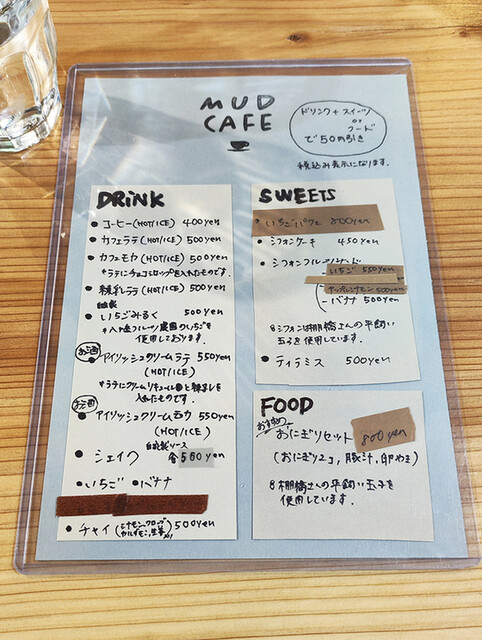 MUD
CAFE
ドリンク+スイーツ
or
フード
で50円引き
税込み表示になります。
DRiNK
• コーヒー(HOT/ICE) 400yen
• カフェラテ(HOT/ICE) 500yen
• カフェモカ(HOT/ICE) 500yen
*ラテにチョコシロップを入れたものです。
• 練乳ラテ(HOT/ICE) 500yen
自家製
• いちごみるく 500yen
フルーツ農園のいちごを
使用しております。
• アイリッシュクリームラテ 550yen
(HOT/ICE)
*ラテにクリームリキュールと練乳を
入れたものです。
• アイリッシュクリームモカ 550yen
(HOT/ICE)
自家製ソース
• シェイク 各550yen
• いちご • バナナ
• チャイ(シナモン、クローブ 500yen
カルダモン、生姜入り)
SWEETS
• いちごパフェ 800yen
• シフォンケーキ 450yen
• シフォンフルーツサンド
- いちご 550yen
- 500yen
- バナナ 500yen
※シフォンは棚橋さんの平飼い
玉子を使用しています。
• ティラミス 500yen
FOOD
おすすめ
おにぎりセット 800yen
(おにぎり2コ, 豚汁, 卵やき)
※棚橋さんの平飼い玉子を
使用しています。